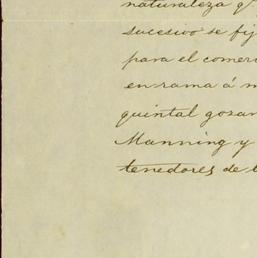 naturaleza q
sucesivo se fij
para el comer
en rama á m
quintal gozan
Manning y
tenedores de